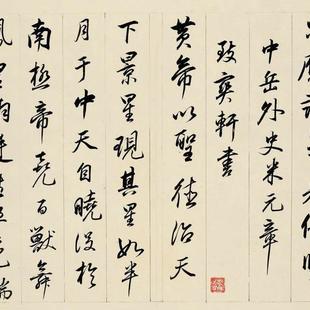 中岳外史米元章
致爽軒書
黄帝以聖徳治天
下景星現其星如半
月于中天自曉没於
南極帝堯百獸舞